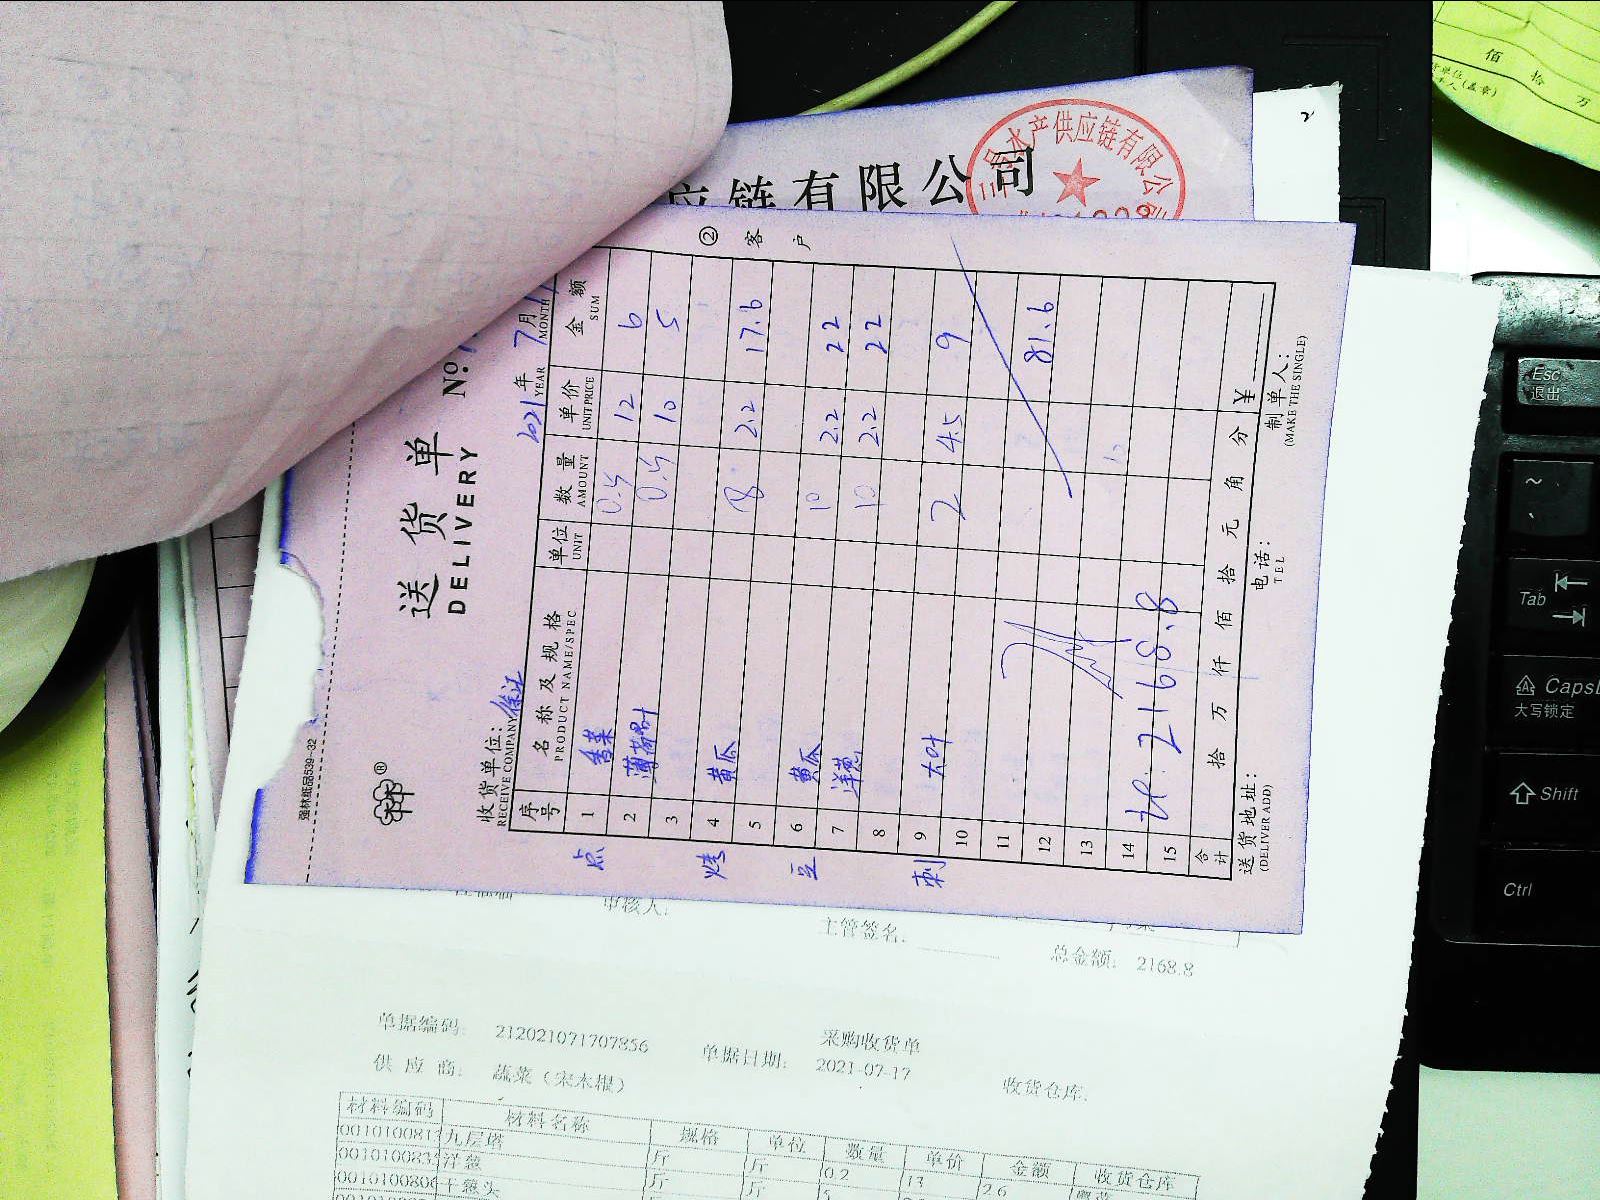 应链有限公司
水产供应链有限公司
② 客户
强林纸品539-32
送货单
DELIVERY
No.
2021年 7月
YEAR MONTH
收货单位:
RECEIVE COMPANY
序号 名称及规格 单位 数量 单价 金额
PRODUCT NAME/SPEC UNIT AMOUNT UNIT PRICE SUM
点 1 香菜 0.5 12 6
2 薄荷叶 0.5 10 5
3
烤 4 黄瓜 8 2.2 17.6
5
豆 6 黄瓜 10 2.2 22
7 洋葱 10 2.2 22
8
刺 9 大叶 2 4.5 9
10
11
12 81.6
13
14 2168.8
15
合计 拾 万 仟 佰 拾 元 角 分 ¥
送货地址: 电话: 制单人:
(DELIVER ADD) TEL (MAKE THE SINGLE)
审核人: 主管签名: 总金额: 2168.8
采购收货单
单据编码: 212021071707856 单据日期: 2021-07-17 收货仓库:
供应商: 蔬菜(宋木根)
材料编码 材料名称 规格 单位 数量 单价 金额 收货仓库
九层塔 斤 斤 0.2 13 2.6
洋葱 斤 斤 5
干葱头
佰 拾 万
Esc
退出
~
Tab
CapsL
大写锁定
Shift
Ctrl